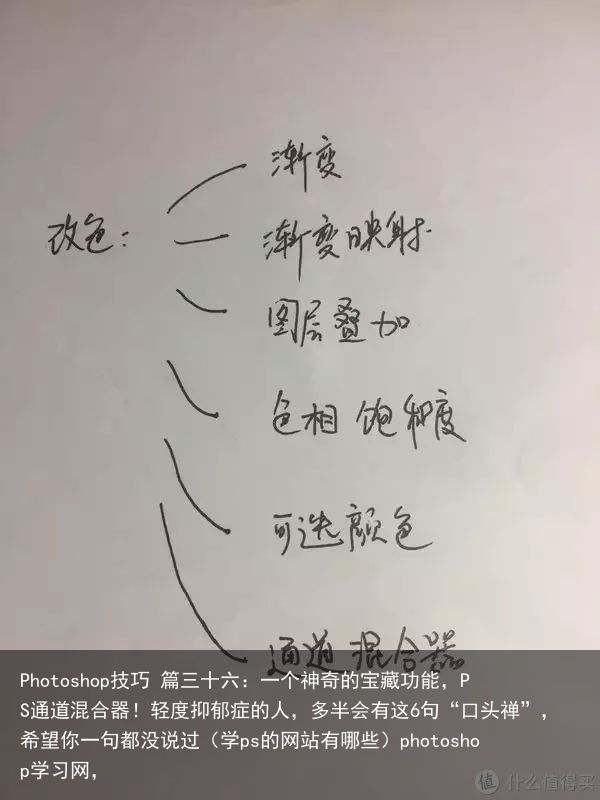 渐变
改色：
渐变映射
图层叠加
色相 饱和度
可选颜色
通道混合器
Photoshop技巧 篇三十六：一个神奇的宝藏功能，P
S通道混合器！轻度抑郁症的人，多半会有这6句“口头禅”，
希望你一句都没说过（学ps的网站有哪些）photosho
p学习网，
值 什么值得买